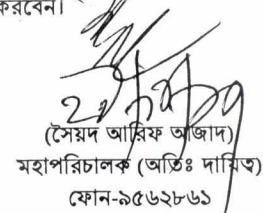 করবেন।
(সৈয়দ আরিফ আজাদ)
মহাপরিচালক (অতিঃ দায়িত্ব)
ফোন-৯৫৬২৮৬১